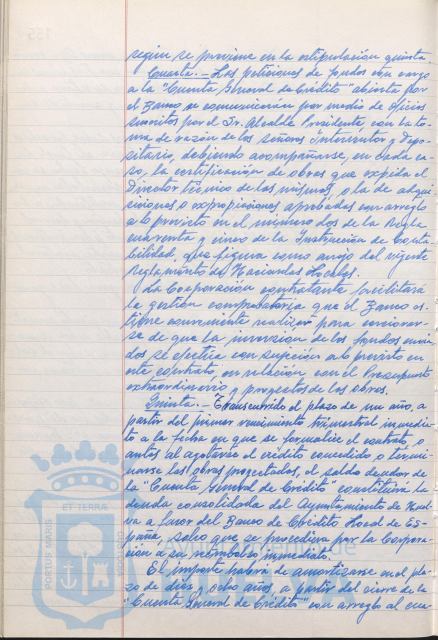 según se previene en la estipulación quinta
Cuarta.- Las peticiones de fondos con cargo
a la "Cuenta General de Crédito" abierta por
el Banco se comunicarán por medio de oficios
suscritos por el Sr. Alcalde Presidente con la to-
ma de razón de los señores Interventor y Depo-
sitario, debiendo acompañarse, en cada ca-
so, la certificación de obras que expida el
Director técnico de las mismas, o la de adqui-
siciones o expropiaciones aprobadas con arreglo
a lo previsto en el número dos de la Regla
cuarenta y cinco de la Instrucción de Conta-
bilidad, que figura como anejo del vigente
Reglamento de Haciendas Locales.
La Corporación contratante facilitará
la gestión comprobatoria que el Banco es-
time conveniente realizar para cerciorar-
se de que la inversión de los fondos envia-
dos se efectúa con sujeción a lo previsto en
este contrato, en relación con el Presupuesto
extraordinario y proyectos de las obras.
Quinta.- Transcurrido el plazo de un año, a
partir del primer vencimiento trimestral inmedia-
to a la fecha en que se formalice el contrato, o
antes al agotarse el crédito concedido o termi-
narse las obras proyectadas, el saldo deudor de
la "Cuenta General de Crédito" constituirá la
deuda consolidada del Ayuntamiento de Huel-
va a favor del Banco de Crédito Local de Es-
paña, salvo que se procediera por la Corpora-
ción a su reembolso inmediato.
El importe habrá de amortizarse en el pla-
zo de diez y ocho años, a partir del cierre de la
"Cuenta General de Crédito" con arreglo al cua-
PORTUS MARIS ET TERRAE
de